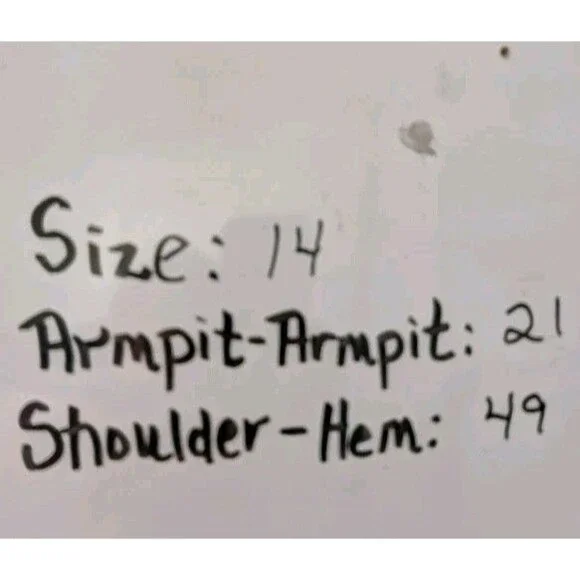 Size: 14
Armpit-Armpit: 21
Shoulder-Hem: 49